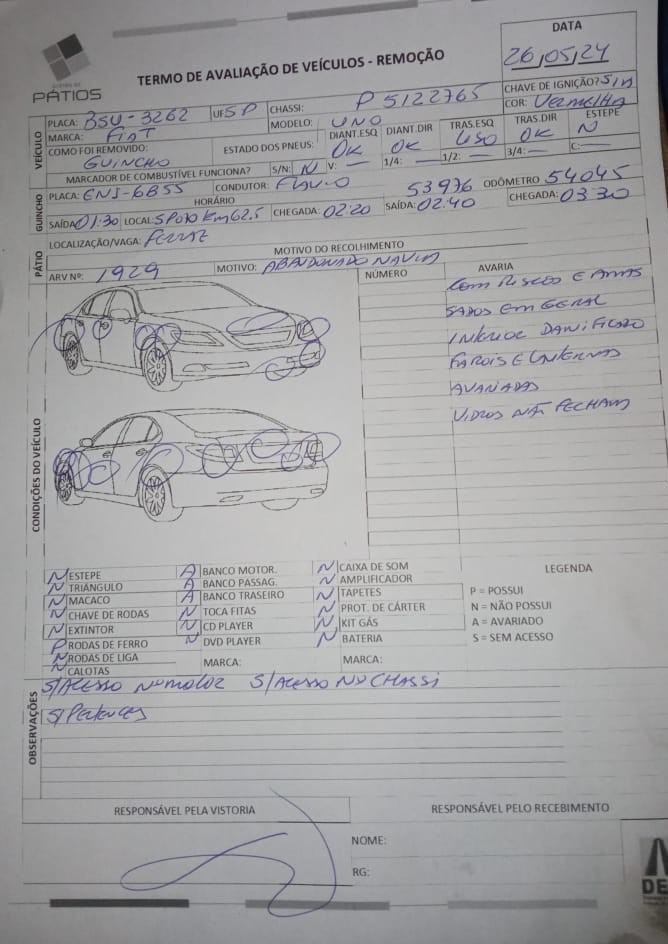 DATA
TERMO DE AVALIAÇÃO DE VEÍCULOS - REMOÇÃO
26/05/24
PÁTIOS
CHAVE DE IGNIÇÃO? S/N
PLACA: BSU-3262 UF SP CHASSI: P 5122765 COR: Vermelha
VEÍCULO
MARCA: FIAT MODELO: UNO
DIANT.ESQ DIANT.DIR TRAS.ESQ TRAS.DIR ESTEPE
COMO FOI REMOVIDO: GUINCHO ESTADO DOS PNEUS: OK OK USO OK N
MARCADOR DE COMBUSTÍVEL FUNCIONA? S/N: N V: — 1/4: — 1/2: — 3/4: — C: —
GUINCHO
PLACA: ENJ-6B55 CONDUTOR: FLAVIO 53976 ODÔMETRO 54045
HORÁRIO
SAÍDA: 01:30 LOCAL: SP 010 Km 62.5 CHEGADA: 02:20 SAÍDA: 02:40 CHEGADA: 03 30
PÁTIO
LOCALIZAÇÃO/VAGA:
MOTIVO DO RECOLHIMENTO
ARV Nº: 1929 MOTIVO: ABANDONADO NA VIA
NÚMERO AVARIA
COM RISCOS E AMAS
SADOS EM GERAL
INTERIOR DANIFICADO
FAROIS E LANTERNAS
AVARIADAS
VIDROS NÃO FECHAM
CONDIÇÕES DO VEÍCULO
N ESTEPE A BANCO MOTOR. N CAIXA DE SOM LEGENDA
N TRIÂNGULO A BANCO PASSAG. N AMPLIFICADOR
N MACACO A BANCO TRASEIRO N TAPETES P = POSSUI
N CHAVE DE RODAS N TOCA FITAS N PROT. DE CÁRTER N = NÃO POSSUI
N EXTINTOR N CD PLAYER N KIT GÁS A = AVARIADO
P RODAS DE FERRO N DVD PLAYER N BATERIA S = SEM ACESSO
N RODAS DE LIGA MARCA: MARCA:
N CALOTAS
OBSERVAÇÕES
S/ACESSO Nº MOTOR S/ACESSO Nº CHASSI
S/Pertences
RESPONSÁVEL PELA VISTORIA RESPONSÁVEL PELO RECEBIMENTO
NOME:
RG:
DE